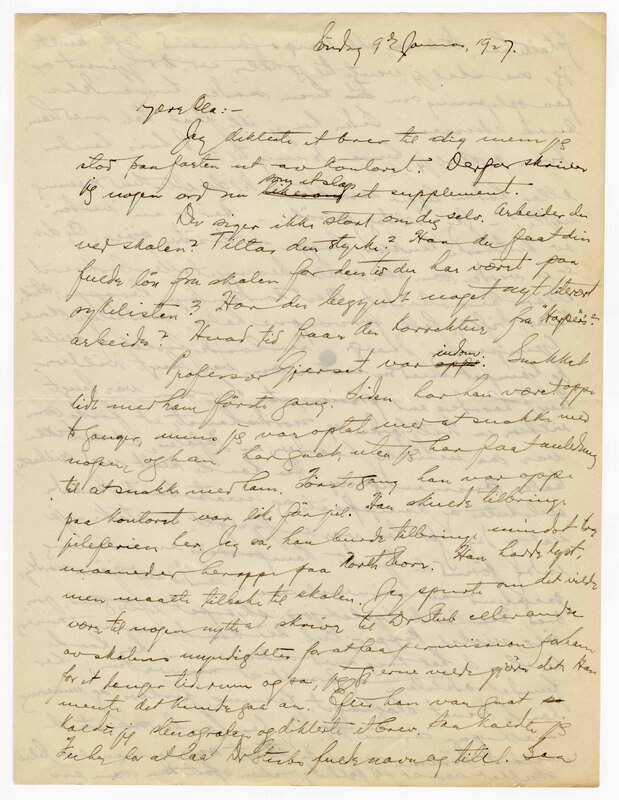 Söndag 9de Januar, 1927.
Kjære Ola:–
Jeg dikterte et brev til dig mens jeg
stod paa farten ut av kontoret. Derfor skriver
jeg nogen ord nu som et slags et supplement.
Du siger ikke stort om dig selv. Arbeider du
ved skolen? Tiltar din styrke? Har du faat din
fulde lön fra skolen for den tid du har været paa
sykelisten? Har du begyndt noget nyt literært
arbeide? Hvad tid faar du korrektur fra Harper's?
Professor Gjerset var indom. Snakket
lidt med ham förste gang. Siden har han været oppe
to ganger, mens jeg var optat med at snakke med
nogen, og han har gaat uten jeg har faat anledning
til at snakke med ham. Förste gang han var oppe
paa kontoret var like för jul. Han skulde tilbringe
juleferien her. Jeg sa, han burde tilbringe mindst tre
maaneder heroppe paa North Shore. Han hadde lyst,
men maatte tilbake til skolen. Jeg spurte om det vilde
være til nogen nytte at skrive til Dr Stub eller andre
av skolens myndigheter for at faa permission for ham
for et længer tidsrum og sa, jeg gjerne vilde gjöre det. Han
mente det kunde gaa an. Efter han var gaat
kaldte jeg stenografen og dikterte et brev. Saa kaldte jeg
for at faa Dr. Stubs fulde navn og titel. Saa